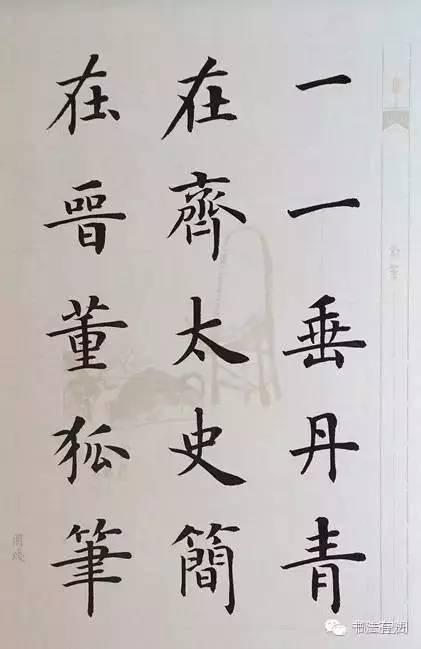 一一垂丹青
在齊太史簡
在晉董狐筆
书法有法